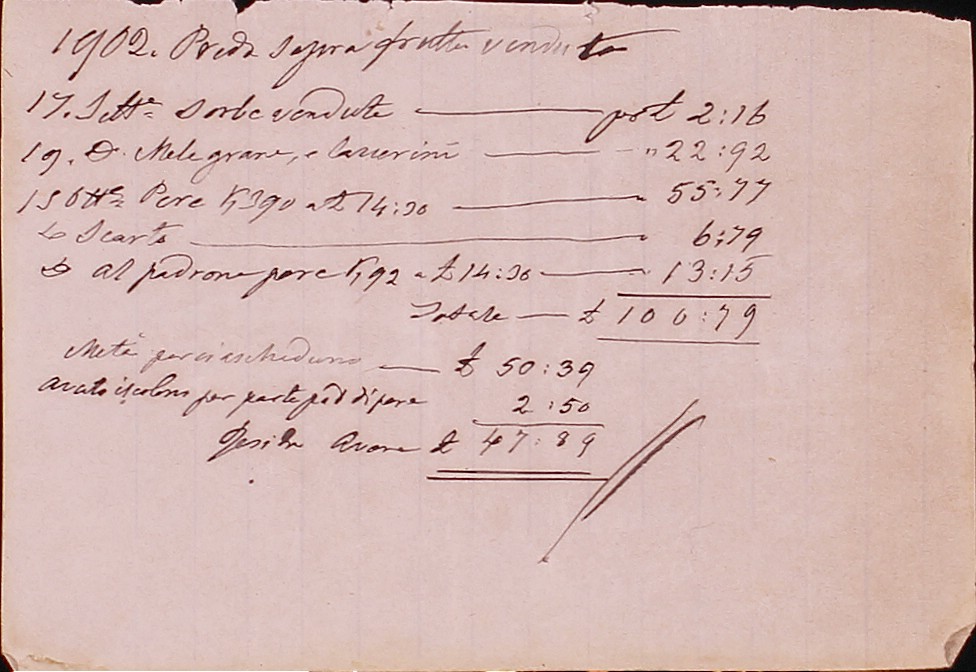 1902. Preda sopra frutta venduta
17. Sett.e sorbe vendute per £ 2:16
19. D. Mele grane, e lazzerini " 22:92
15 Ott.e Pere K, 390 a £ 14:30 55:77
D Scarto 6:79
D al padrone pere K, 92 a £ 14:30 13:15
Totale £ 100:79
Metà per ciascheduno £ 50:39
avuto il colono per parte pad di pere 2:50
Resida Avere £ 47:89